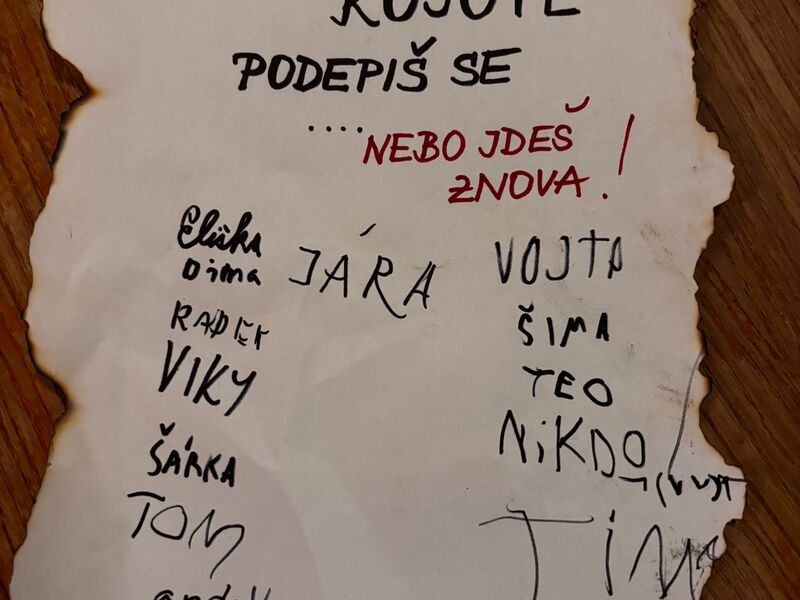 KOJOTE
PODEPIŠ SE
....NEBO JDEŠ
ZNOVA.!
Eliška
Dima
JÁRA
VOJTA
RADEK
ŠIMA
VIKY
TEO
NiKDO
ŠÁRKA
TOM